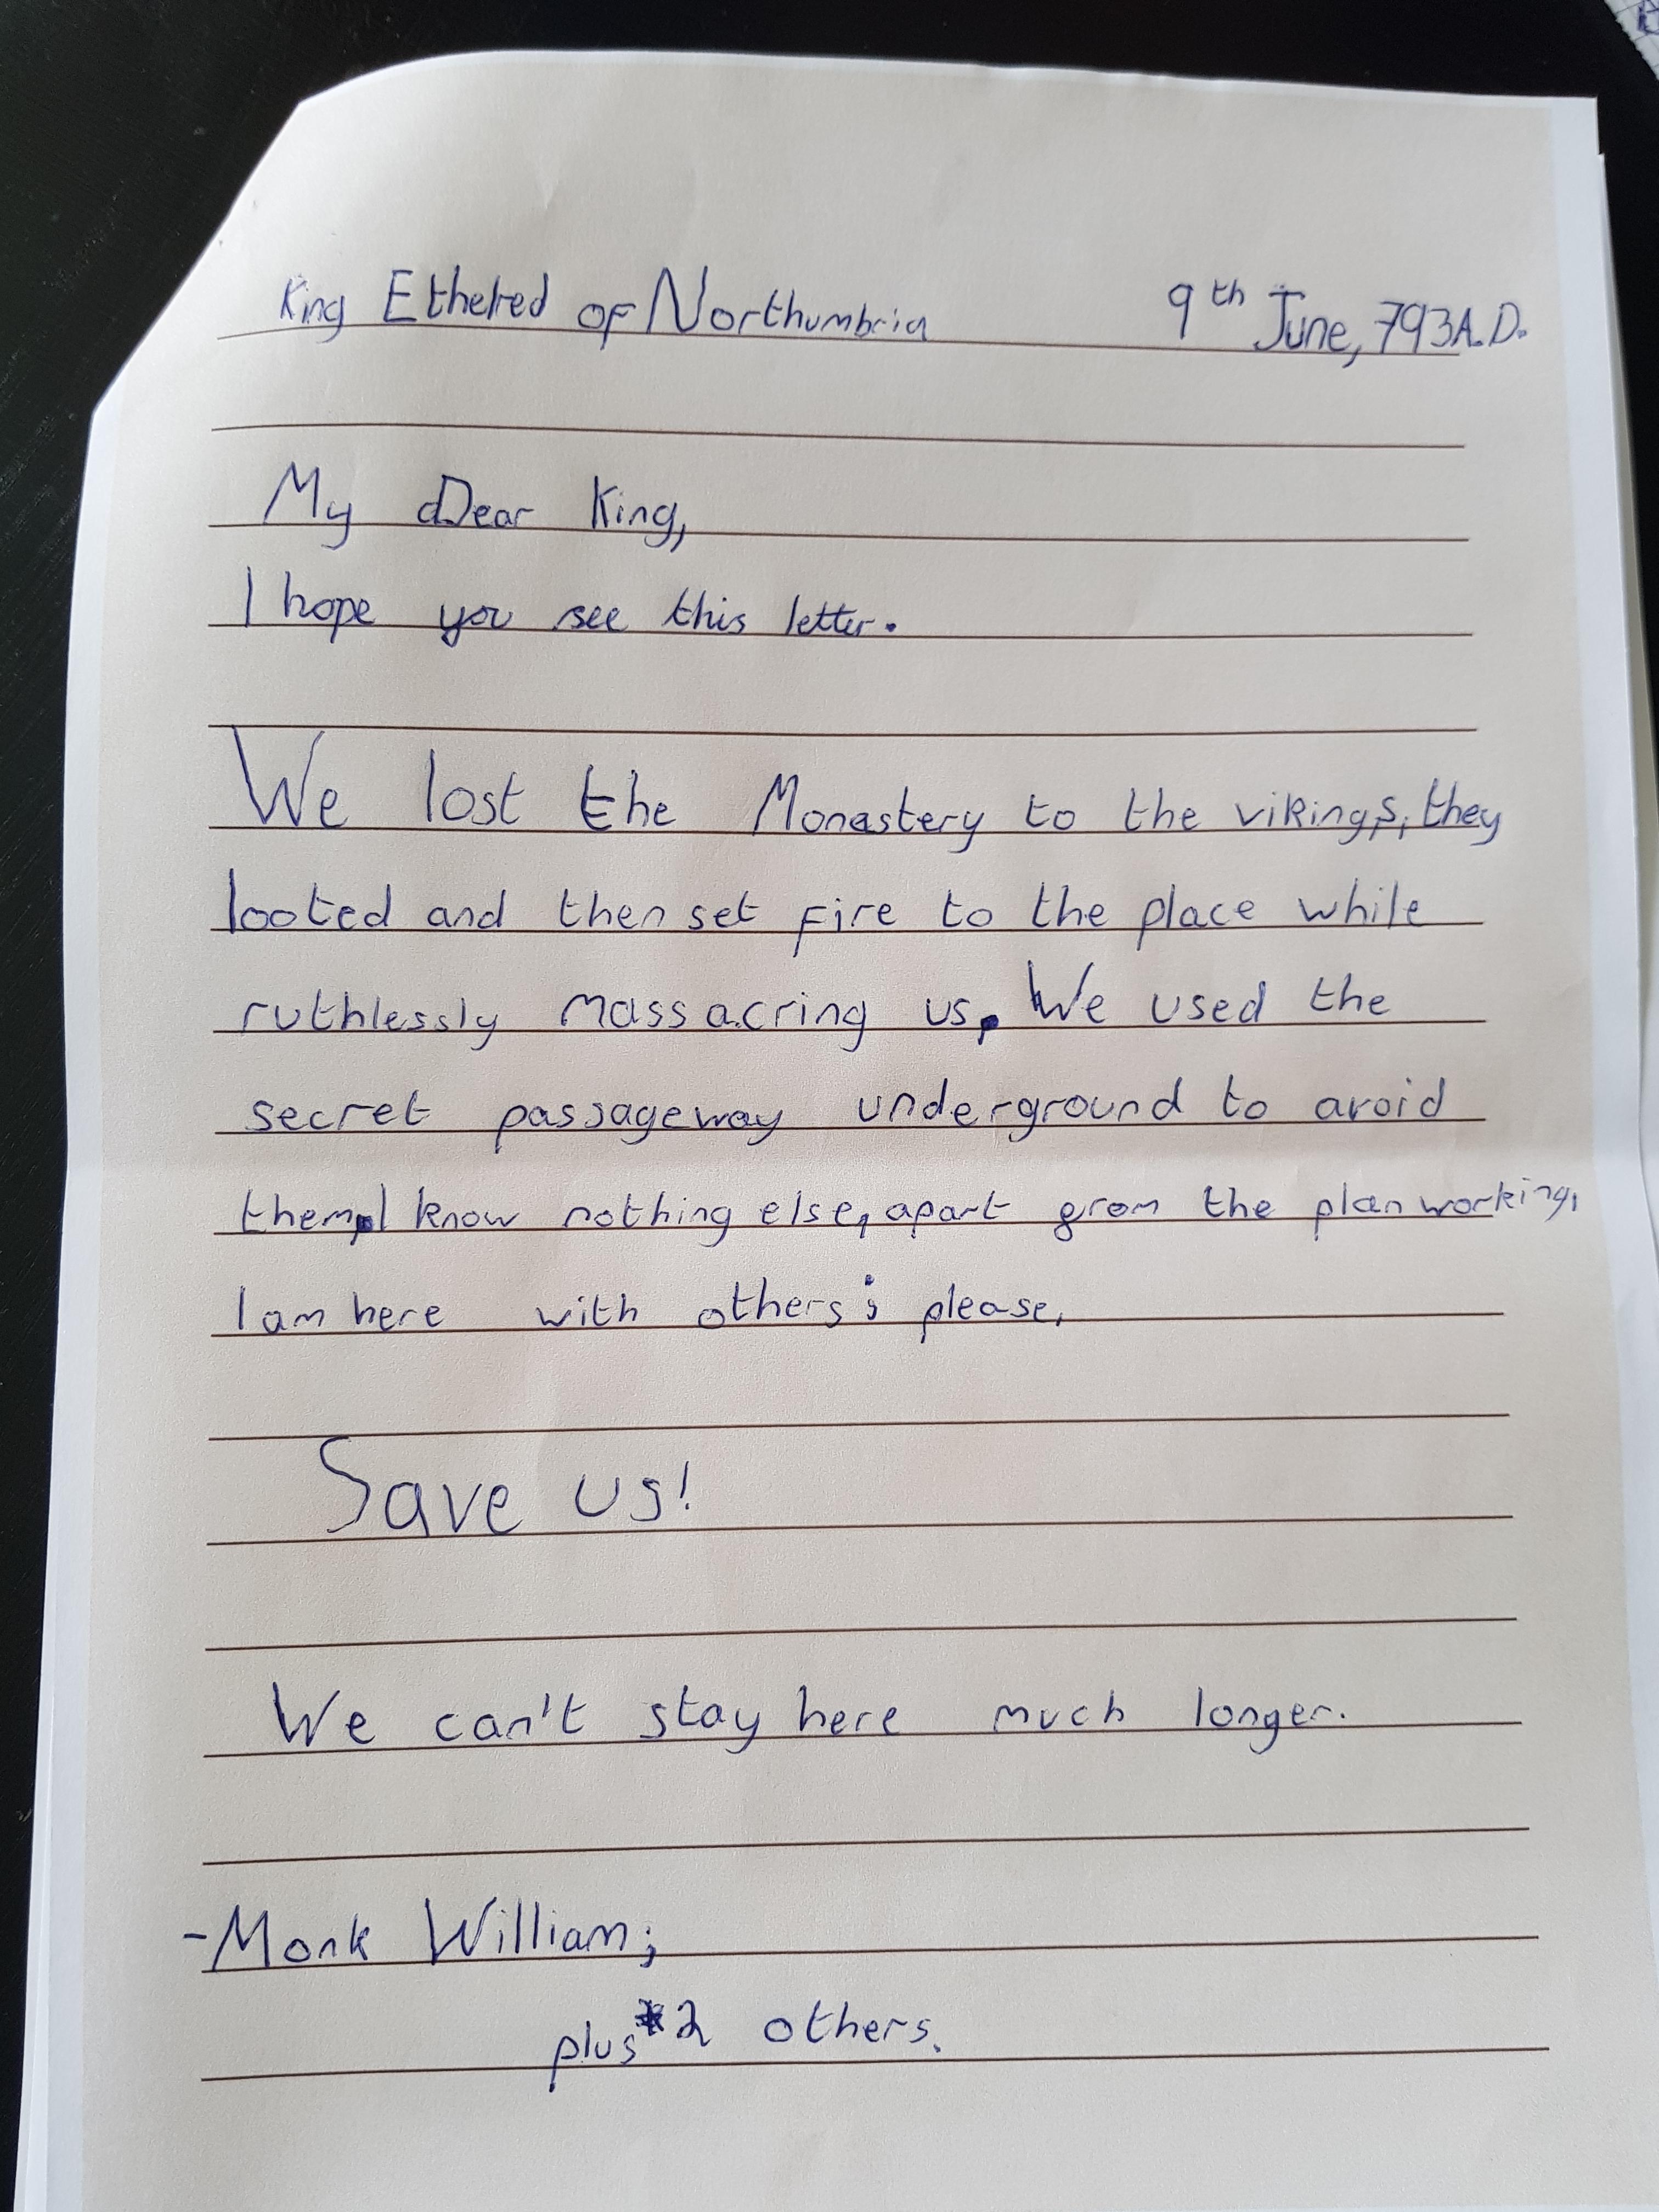 King Ethelred of Northumbria 9th June, 793A.D.
My Dear King,
I hope you see this letter.
We lost the Monastery to the vikings, they
looted and then set fire to the place while
ruthlessly massacring us. We used the
secret passageway underground to avoid
them, I know nothing else, apart grom the plan working,
I am here with others; please,
Save us!
We can't stay here much longer.
-Monk William;
plus 2 others.